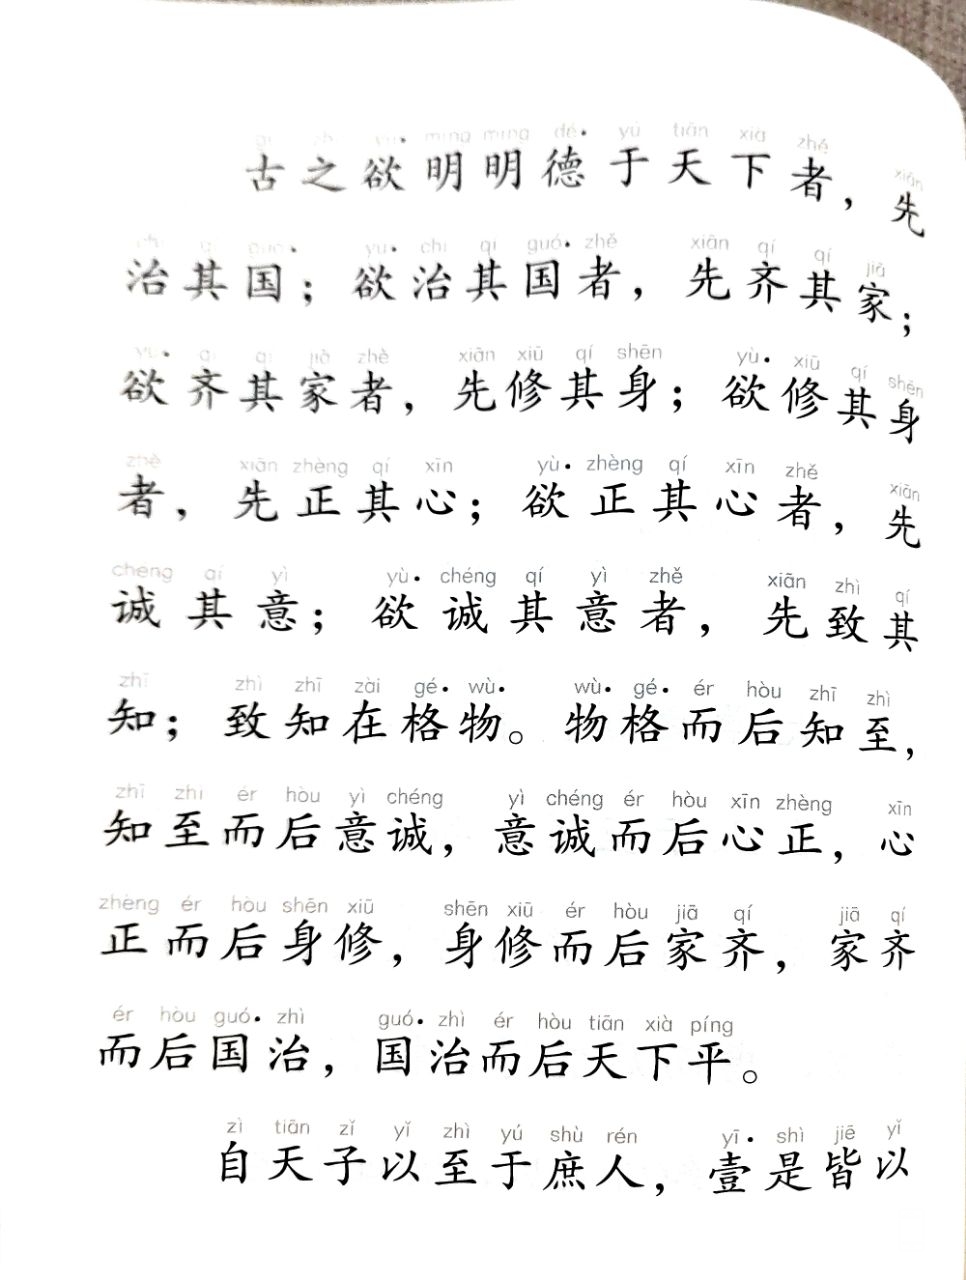 gǔ zhī yù• míng míng dé• yú tiān xià zhě xiān
古之欲明明德于天下者，先
chí qí guó• yù• chí qí guó• zhě xiān qí qí jiā
治其国；欲治其国者，先齐其家；
yù• qí qí jiā zhě xiān xiū qí shēn yù• xiū qí shēn
欲齐其家者，先修其身；欲修其身
zhě xiān zhèng qí xīn yù• zhèng qí xīn zhě xiān
者，先正其心；欲正其心者，先
chéng qí yì yù• chéng qí yì zhě xiān zhì qí
诚其意；欲诚其意者，先致其
zhī zhì zhī zài gé• wù• wù• gé• ér hòu zhī zhì
知；致知在格物。物格而后知至，
zhī zhì ér hòu yì chéng yì chéng ér hòu xīn zhèng xīn
知至而后意诚，意诚而后心正，心
zhèng ér hòu shēn xiū shēn xiū ér hòu jiā qí jiā qí
正而后身修，身修而后家齐，家齐
ér hòu guó• zhì guó• zhì ér hòu tiān xià píng
而后国治，国治而后天下平。
zì tiān zǐ yǐ zhì yú shù rén yī• shì jiē yǐ
自天子以至于庶人，壹是皆以